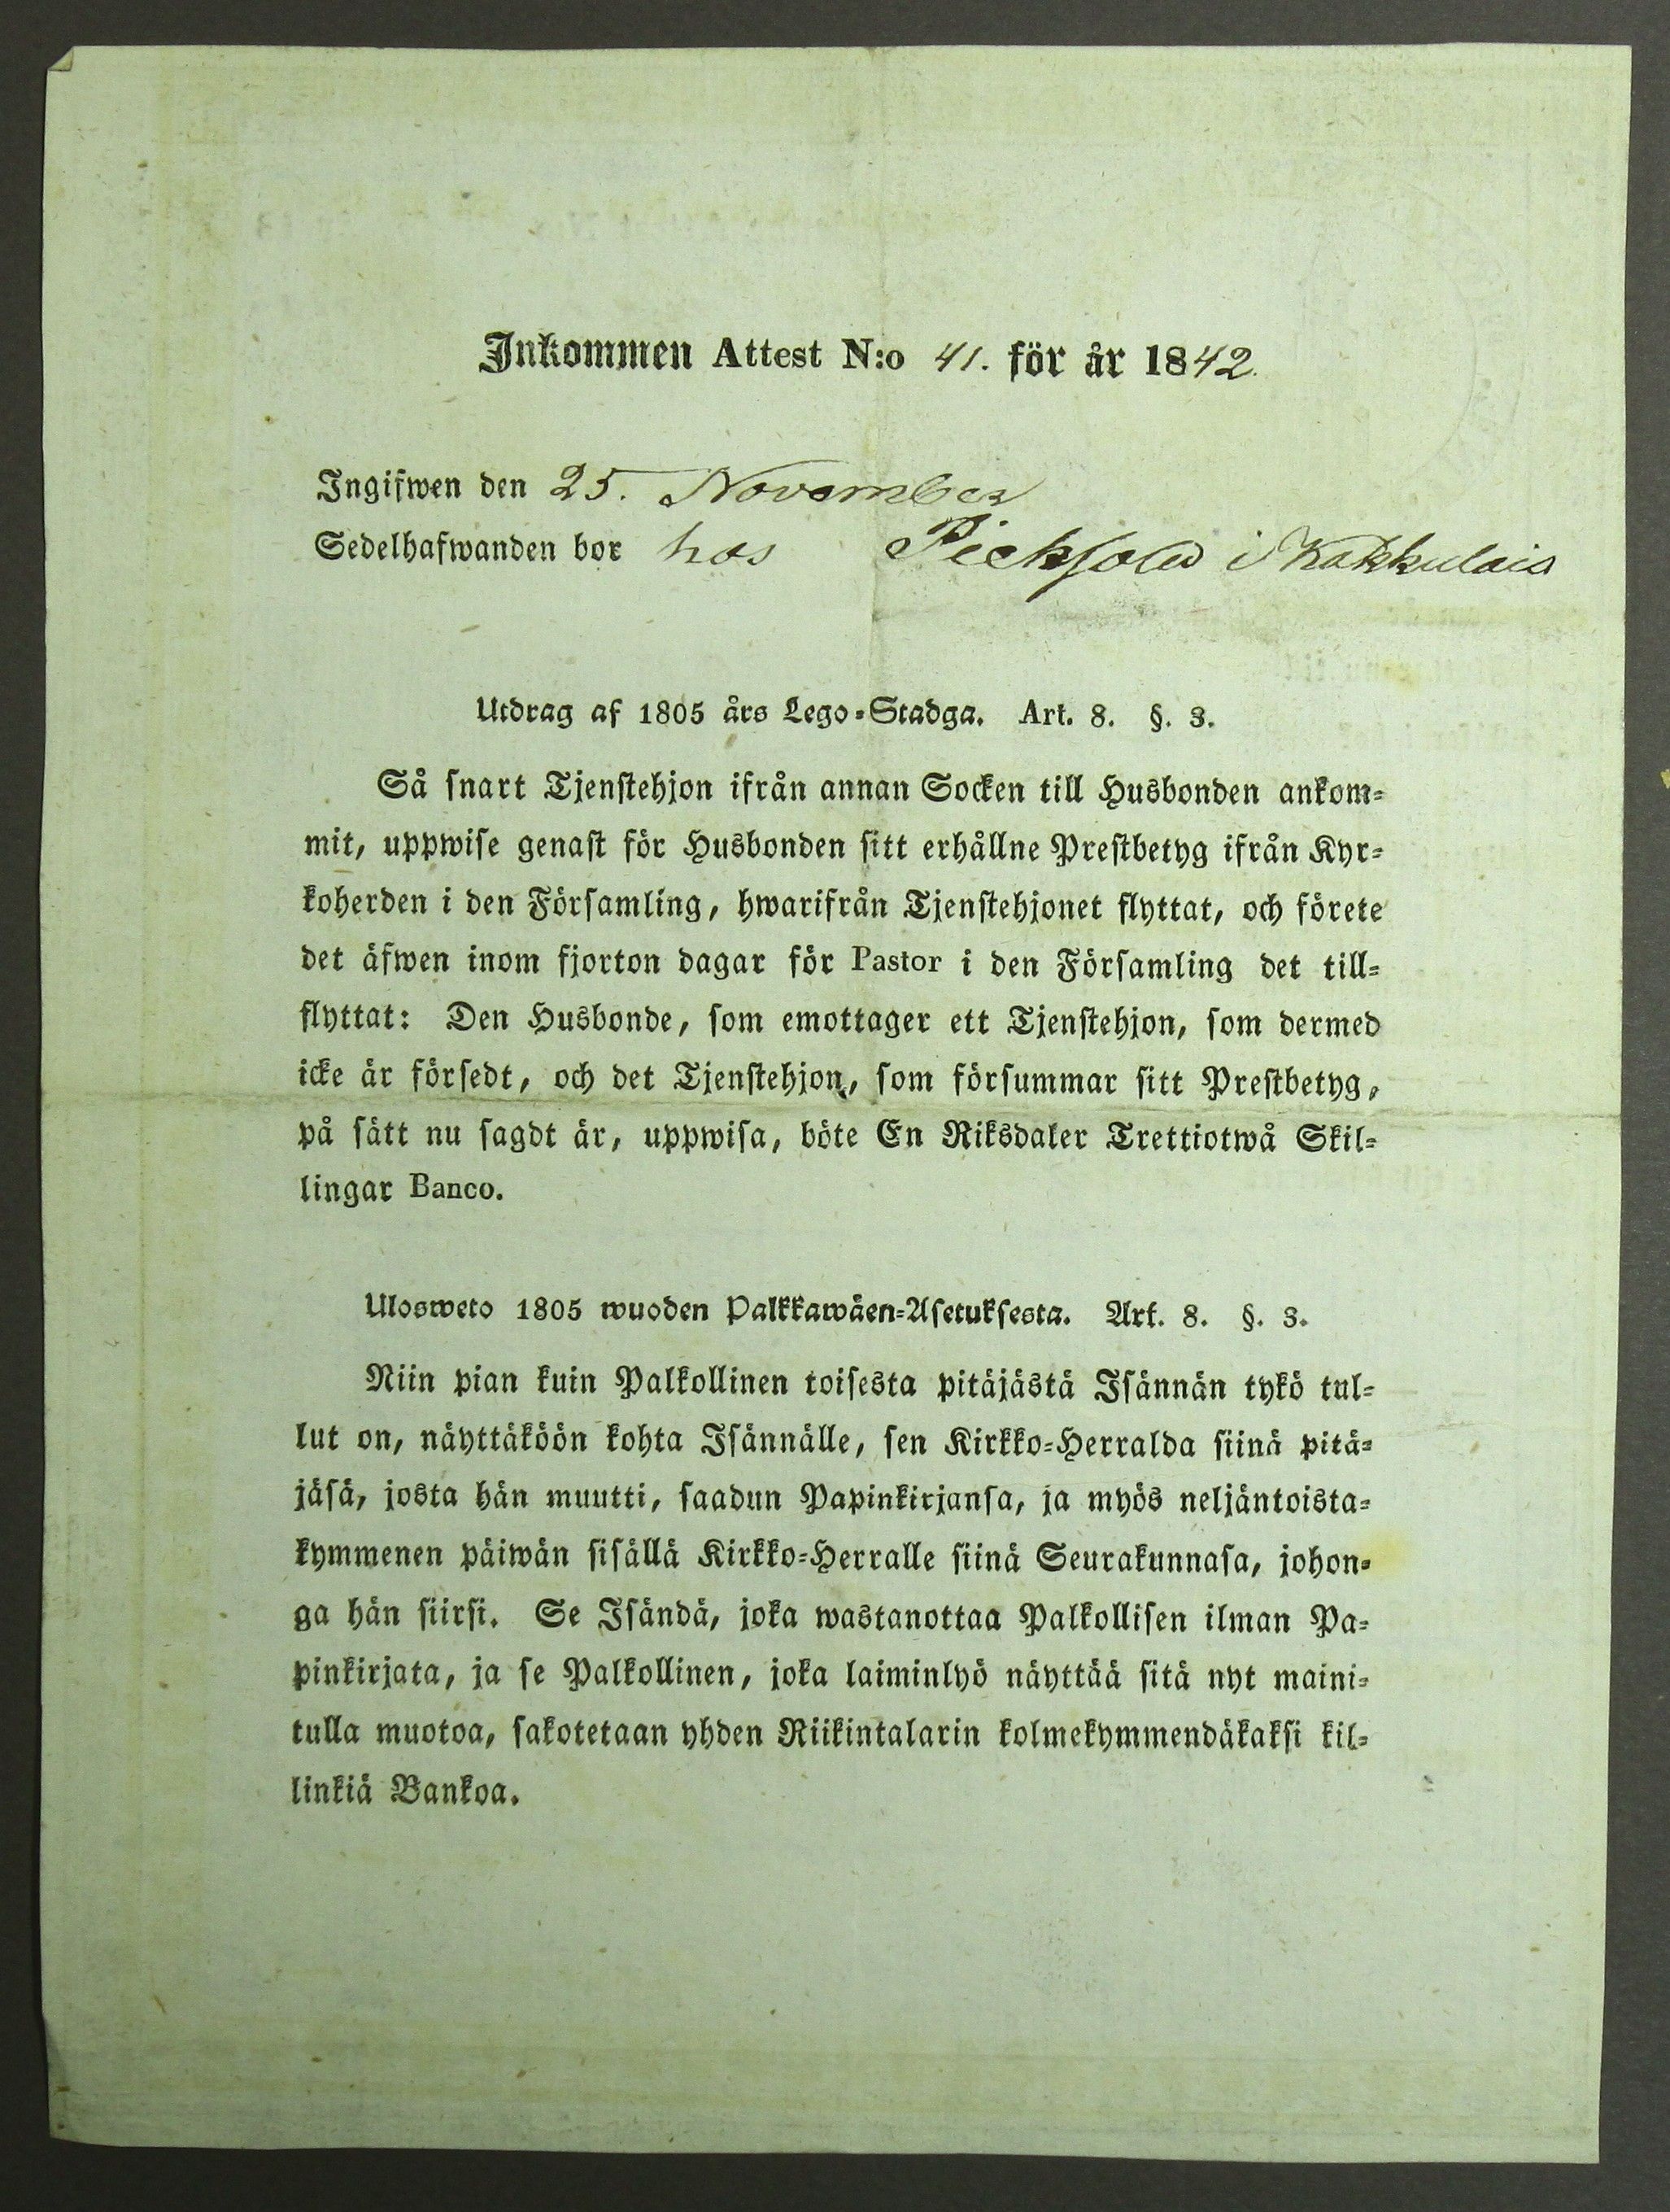 Inkommen Attest N:o 41. för år 1842.
Ingifwen den 25. November
Sedelhafwanden bor hos i Kakkulais
Utdrag af 1805 års Lego-Stadga. Art. 8. §. 3.
Så snart Tjenstehjon ifrån annan Socken till Husbonden ankom-
mit, uppwise genast för Husbonden sitt erhållne Prestbetyg ifrån Kyr-
koherden i den Församling, hwarifrån Tjenstehjonet flyttat, och förete
det äfwen inom fjorton dagar för Pastor i den Församling det till-
flyttat: Den Husbonde, som emottager ett Tjenstehjon, som dermed
icke är försedt, och det Tjenstehjon, som försummar sitt Prestbetyg,
på sätt nu sagdt är, uppwisa, böte En Riksdaler Trettiotwå Skil-
lingar Banco.
Ulosweto 1805 wuoden Palkkawäen-Asetuksesta. Art. 8. §. 3.
Niin pian kuin Palkollinen toisesta pitäjästä Isännän tykö tul-
lut on, näyttäköön kohta Isännälle, sen Kirkko-Herralda siinä pitä-
jäsä, josta hän muutti, saadun Papinkirjansa, ja myös neljäntoista-
kymmenen päiwän sisällä Kirkko-Herralle siinä Seurakunnasa, johon-
ga hän siirsi. Se Isändä, joka wastanottaa Palkollisen ilman Pa-
pinkirjata, ja se Palkollinen, joka laiminlyö näyttää sitä nyt maini-
tulla muotoa, sakotetaan yhden Riikintalarin kolmekymmendäkaksi kil-
linkiä Bankoa.